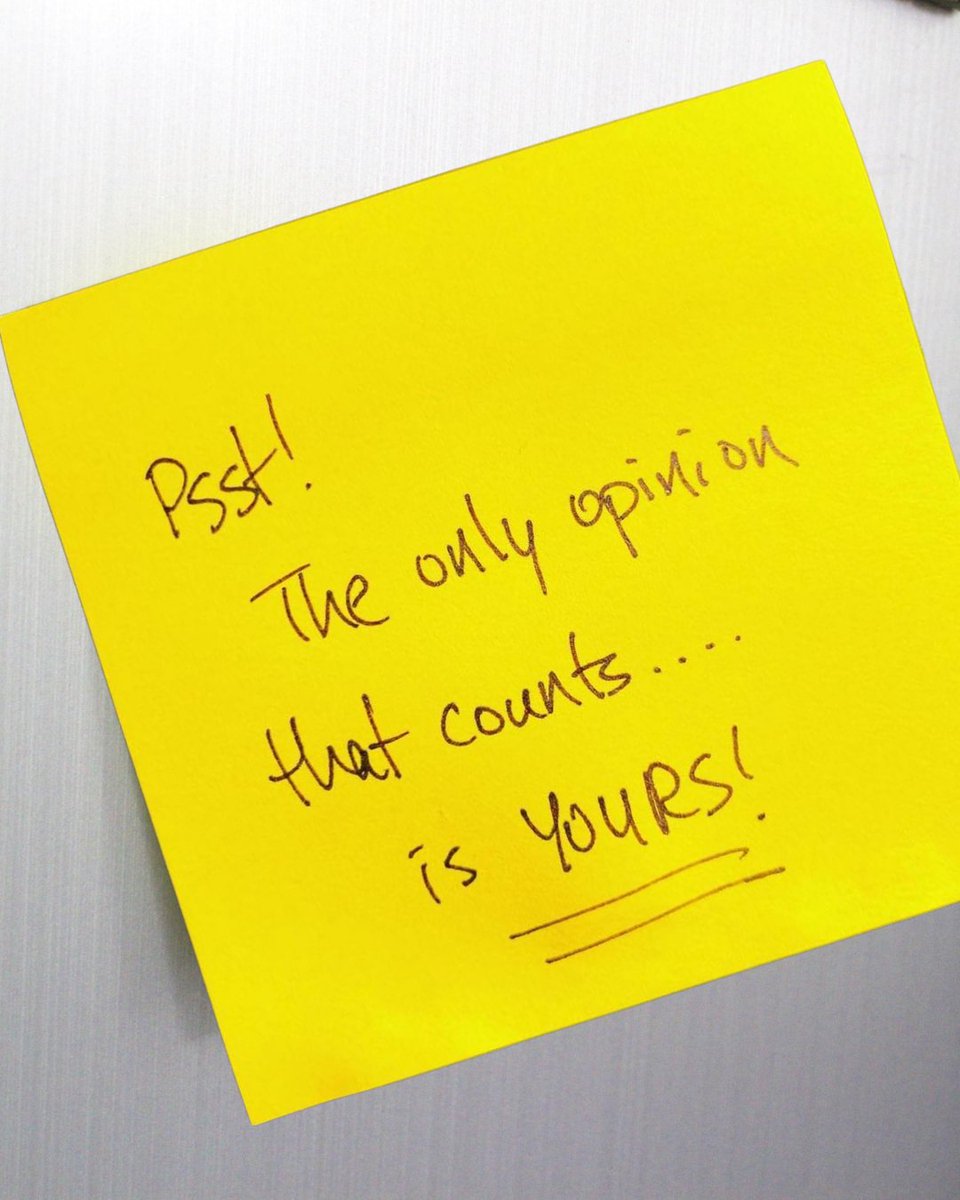 Psst!
The only opinion
that counts.....
is YOURS!